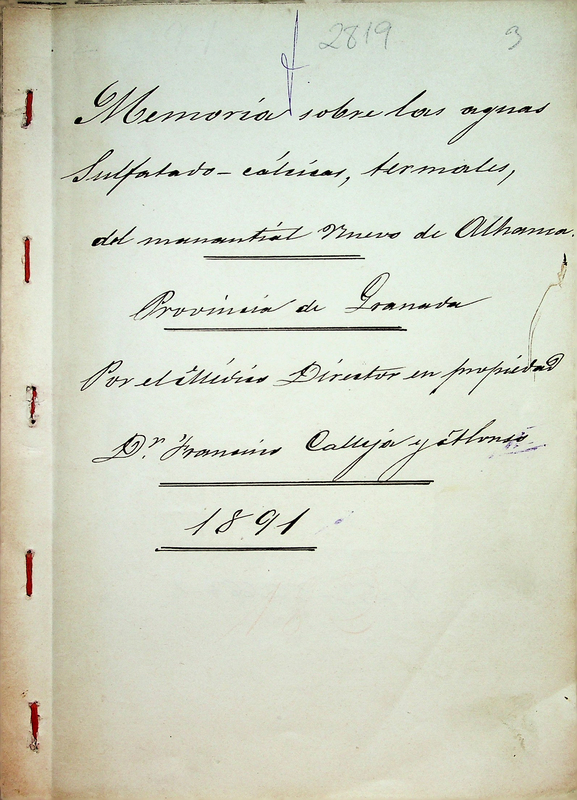 2819 3
Memoria sobre las aguas
Sulfatado-cálcicas, termales,
del manantial Nuevo de Alhama.
Provincia de Granada
Por el Médico Director en propiedad
Dr. Francisco Calleja y Alonso
1891